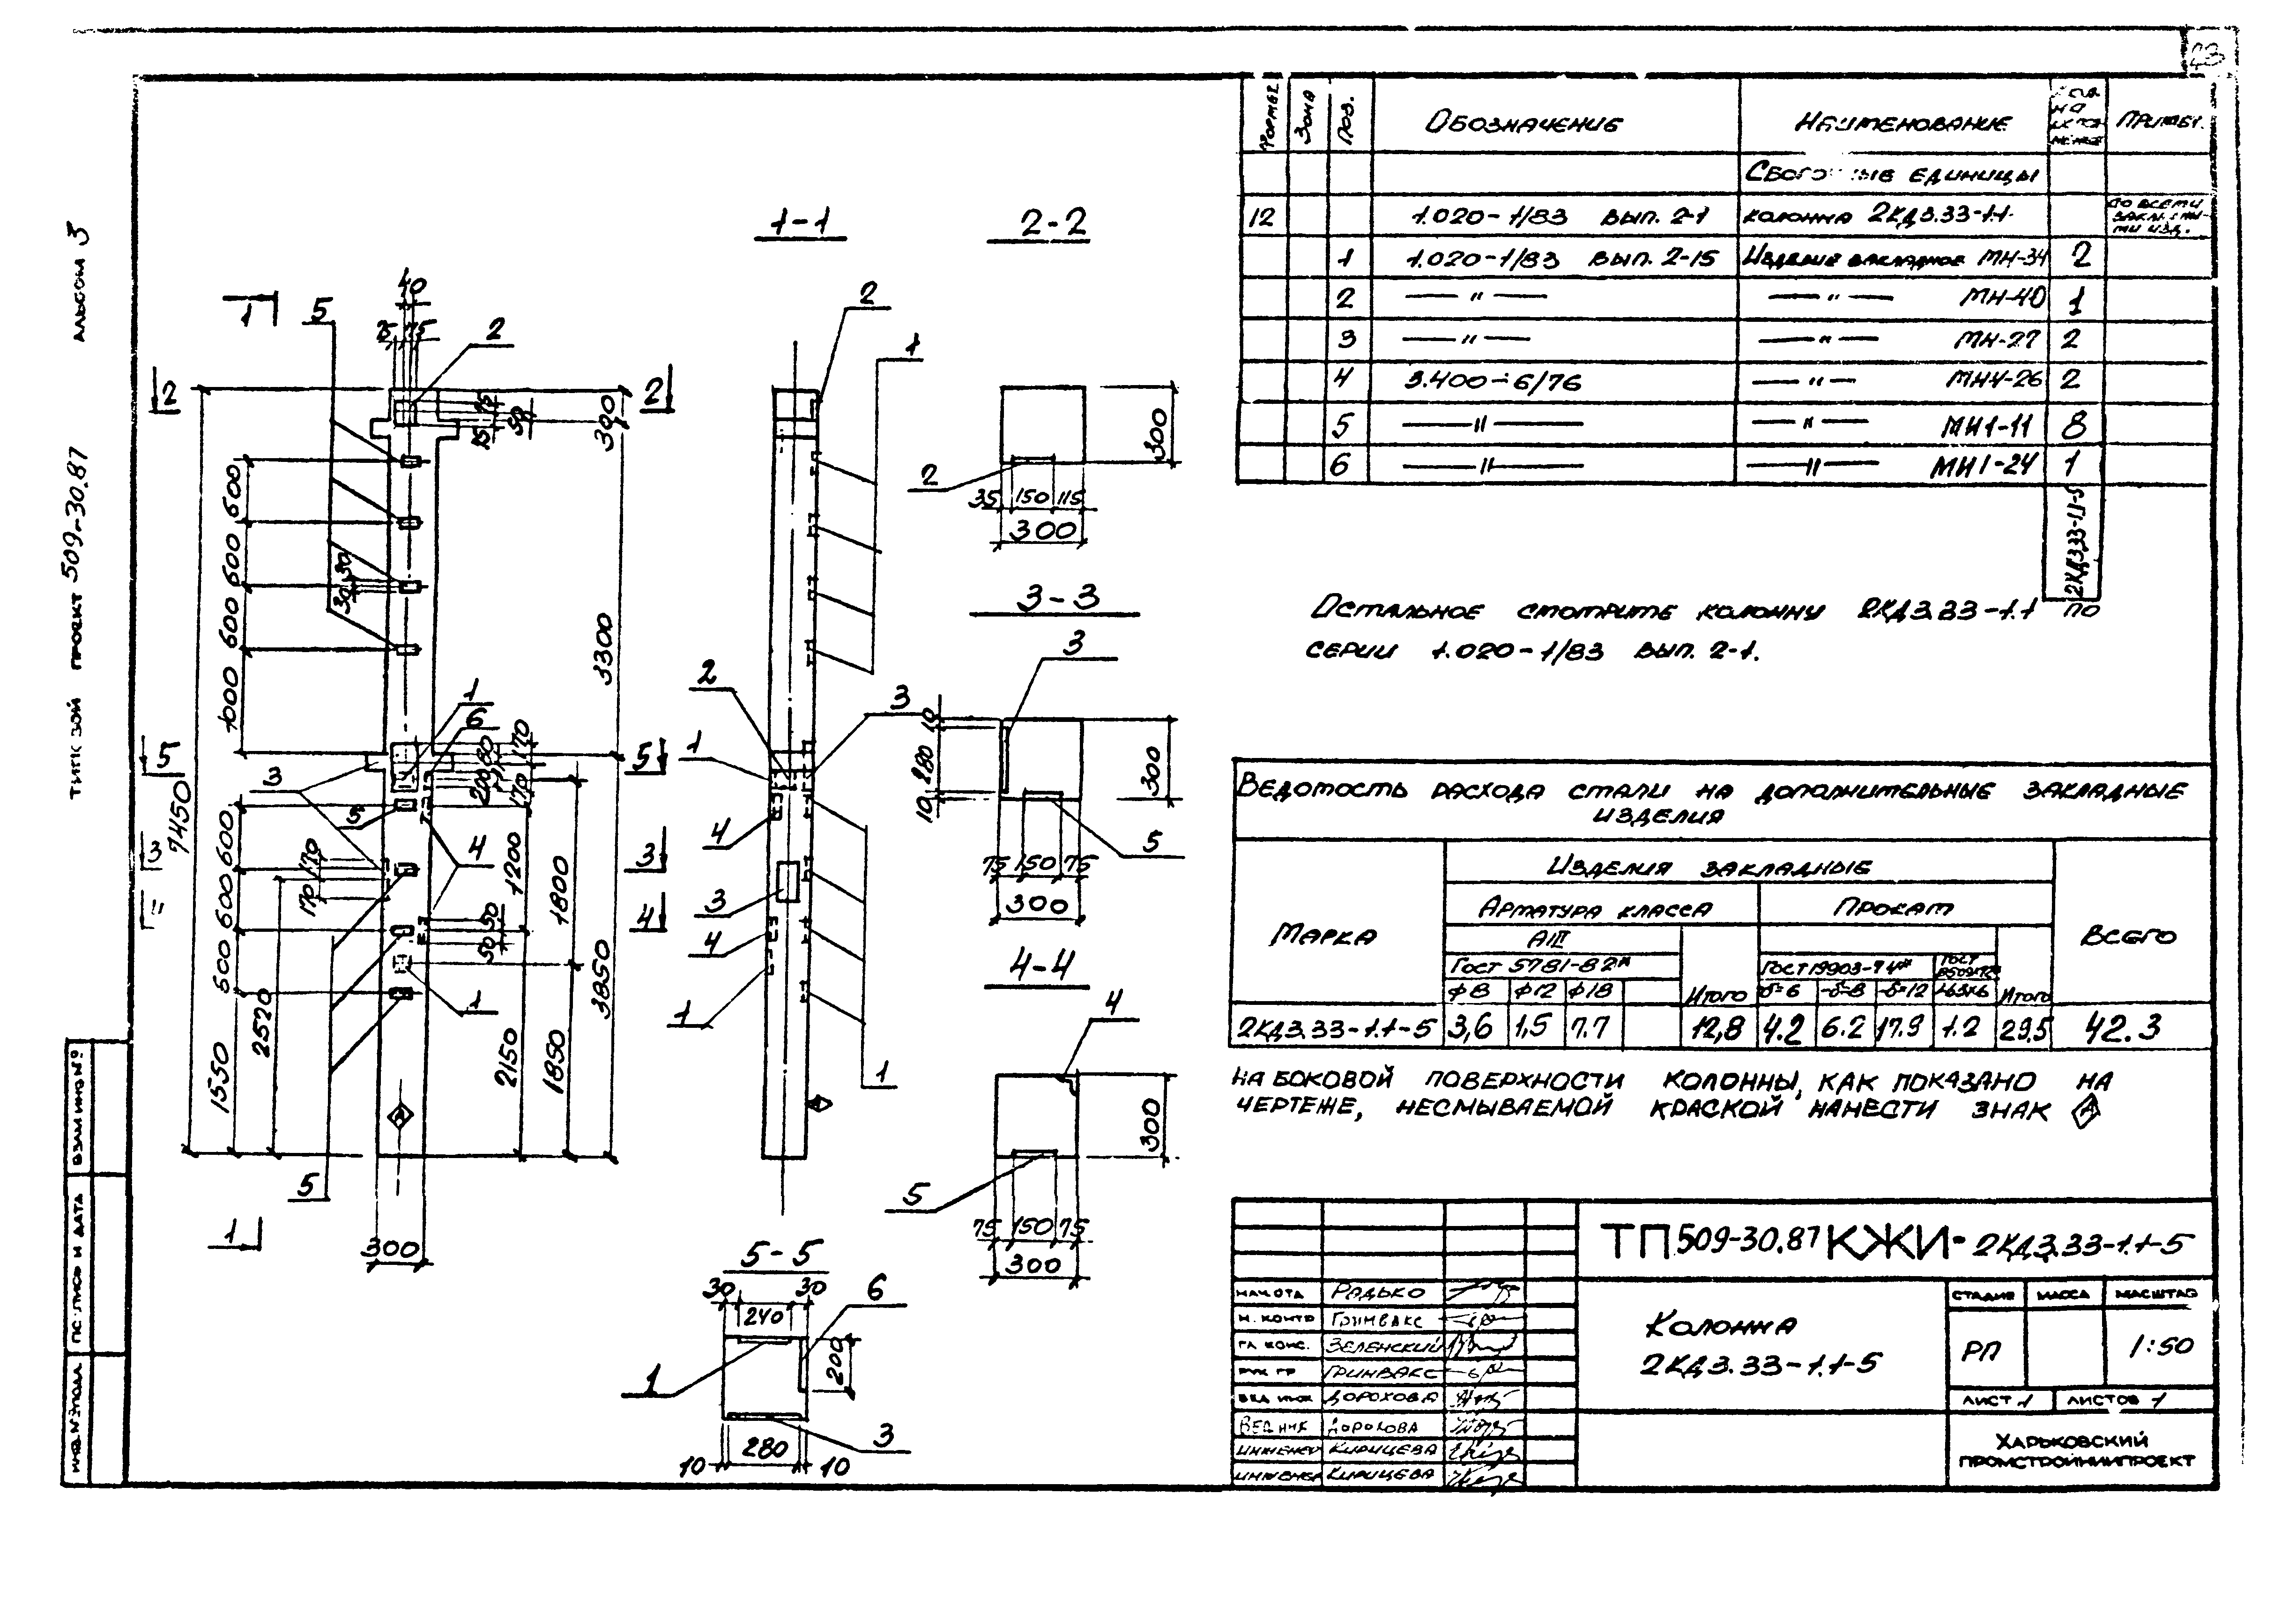 23
Альбом 3
проект 509-30.87
ВЗАМ ИНВ №
ИНВ. № ПОДЛ.
Формат
Зона
Поз.
Обозначение
Наименование
единицы
12
1.020-1/83 вып. 2-1
колонна 2КД3.33-1.1-
1
1.020-1/83 вып. 2-15
Изделие закладное МН-34
2
2
— " —
— " — МН-40
1
3
— " —
— " — МН-27
2
4
3.400-6/76
— " —
2
5
— " —
— " — МН1-11
8
6
— " —
— " — МН1-24
1
2КД3.33-1.1-5
Остальное смотрите колонну 2КД3.33-1.1 по
серии 1.020-1/83 вып. 2-1.
Ведомость расхода стали на дополнительные закладные
изделия
Марка
Изделия закладные
Всего
Арматура класса
Прокат
АIII
Гост 5781-82*
Гост 19903-74*
ф8
ф12
ф18
Итого
-δ=6
-δ=8
-δ=12
Итого
2КД3.33-1.1-5
3,6
1,5
7.7
12,8
4.2
6.2
17.9
1.2
29.5
42.3
На боковой поверхности колонны, как показано на
чертеже, несмываемой краской нанести знак А
ТП 509-30.87 КЖИ-2КД3.33-1.1-5
Нач. отд Радько
Н. контр Гринвакс
Гл. конс. Зеленский
Рук гр Гринвакс
Вед инж Дорохова
Вед инж Дорохова
Инженер Кирицева
Инженер Кирицева
Колонна
2КД3.33-1.1-5
Стадия
Масса
Масштаб
РП
1:50
Лист 1
Листов 1
Харьковский
Промстройниипроект
1-1
2-2
3-3
4-4
5-5
1
5
40
75
75
2
2
2
75
50
75
300
600
600
600
30
30
1000
3300
7450
1
6
170
60
200
170
5
5
3
5
4
3
3
4
600
600
600
170
170
1200
1800
50
50
3850
1
2520
1550
2150
1850
А
5
1
300
2
1
2
3
1
4
3
4
1
1
2
35
150
115
300
300
3
10
280
10
5
75
150
75
300
300
4
5
75
150
75
300
300
30
240
30
6
200
1
3
10
280
10